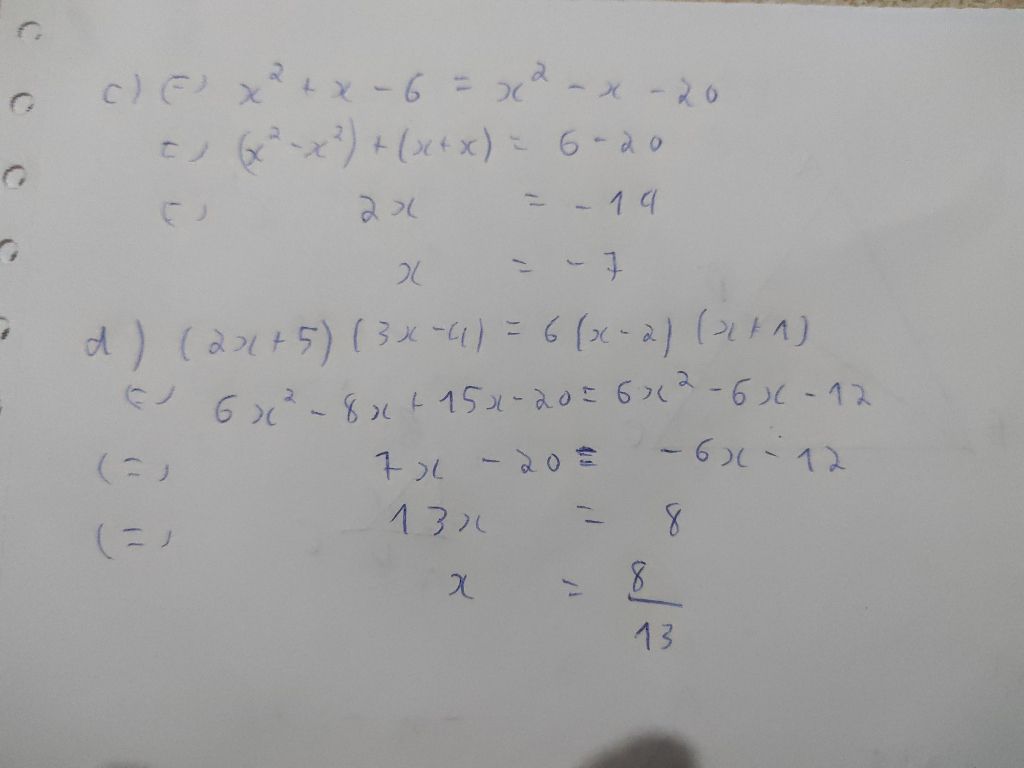 c) (=) x² + x - 6 = x² - x - 20
(=) (x² - x²) + (x + x) = 6 - 20
(=) 2x = - 14
x = - 7
d) (2x + 5) (3x - 4) = 6 (x - 2) (x + 1)
(=) 6x² - 8x + 15x - 20 = 6x² - 6x - 12
(=) 7x - 20 = - 6x - 12
(=) 13x = 8
x = 8/13